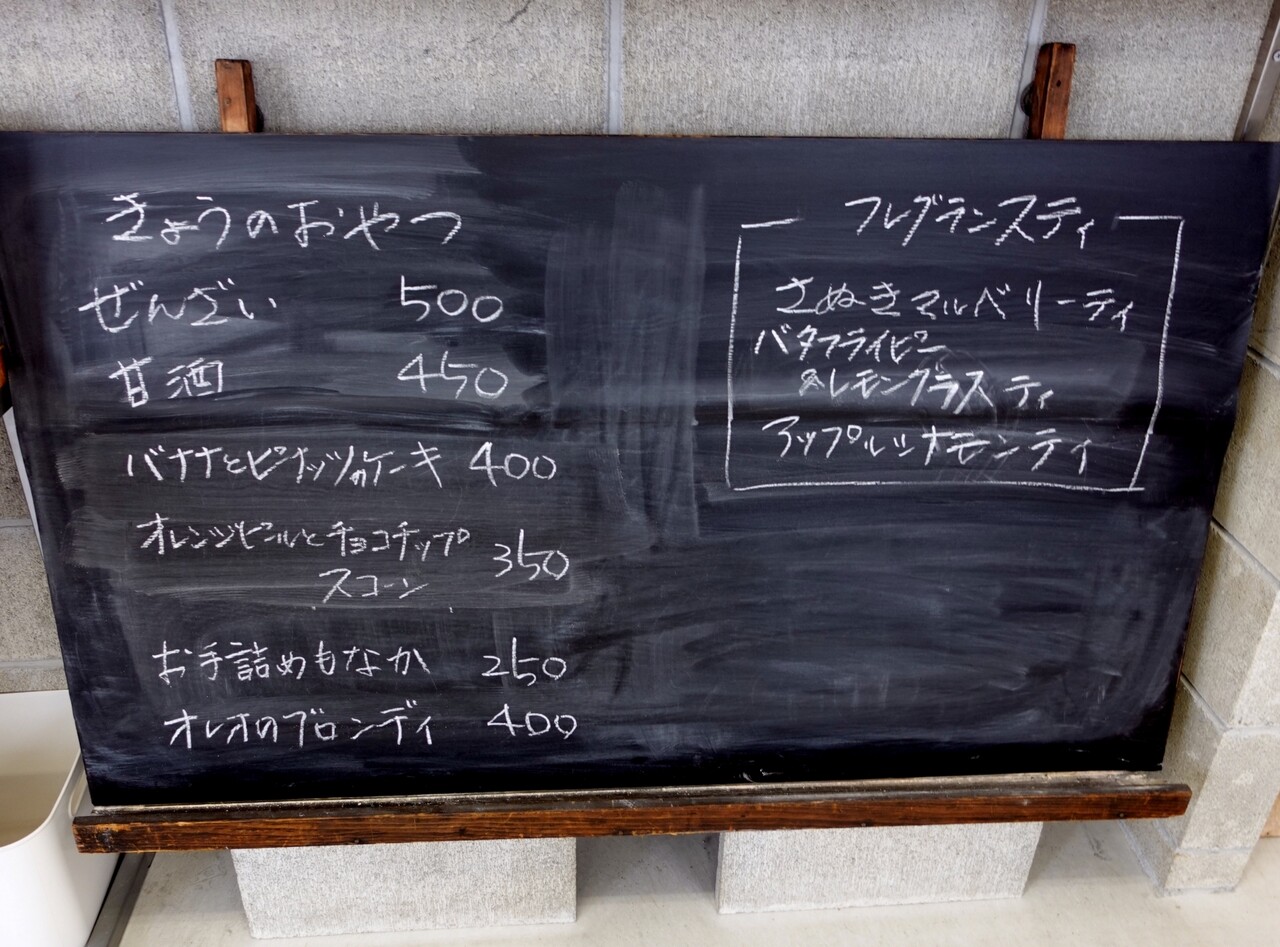 きょうのおやつ
ぜんざい 500
甘酒 450
バナナとピーナッツのケーキ 400
オレンジピールとチョコチップ
スコーン 350
お手詰めもなか 250
オレオのブロンディ 400
フレグランスティ
さぬきマルベリーティ
バタフライピー
&レモングラス ティ
アップルシナモンティ